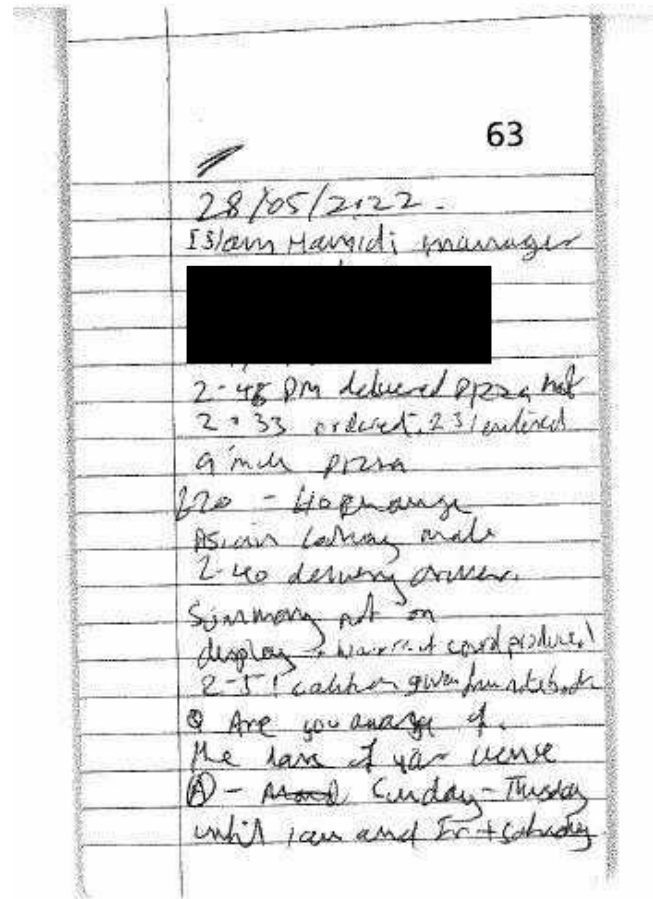 63
28/05/2022.
Islam Hamidi manager
2-48 PM delivered pizza hot
2-33 ordered, 231 entered
9 inch pizza
£20 - change
Asian looking male
2-40 delivery driver.
Summary not on
display - could produced
2-51 caution given from notebook
Q Are you aware of.
the hours of your licence
(A) - Sunday - Thursday
until 1am and Fri + Saturday